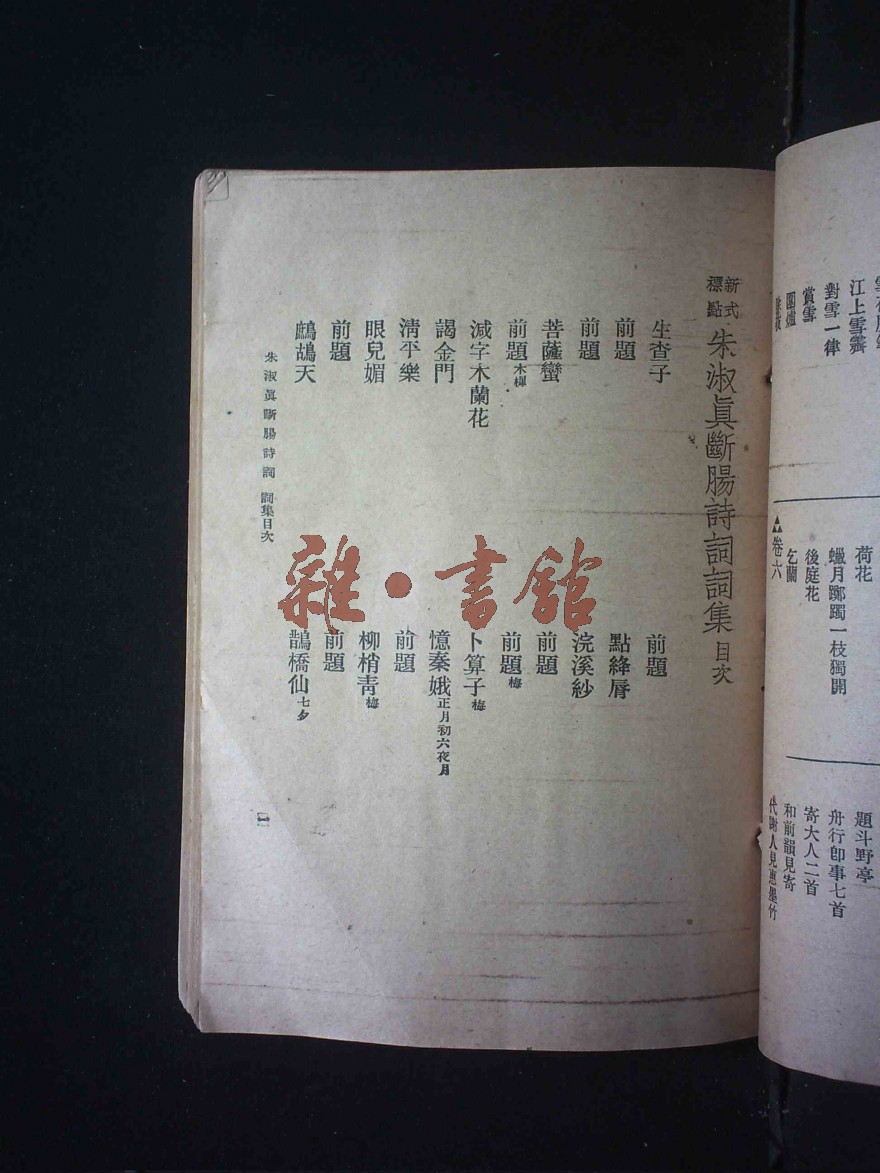 江上雪霽
對雪一律
賞雪
圍爐
荷花
蠟月躑躅一枝獨開
後庭花
乞蘭
卷六
題斗野亭
舟行卽事七首
寄大人二首
和前韻見寄
代謝人見惠墨竹
新式標點 朱淑眞斷腸詩詞詞集 目次
生查子
前題
前題
菩薩蠻
前題 木樨
減字木蘭花
謁金門
清平樂
眼兒媚
前題
鷓鴣天
前題
點絳脣
浣溪紗
前題
前題 梅
卜算子 梅
憶秦娥 正月初六夜月
前題
柳梢靑 梅
前題
鵲橋仙 七夕
朱淑眞斷腸詩詞 詞集目次
一
雜·書館